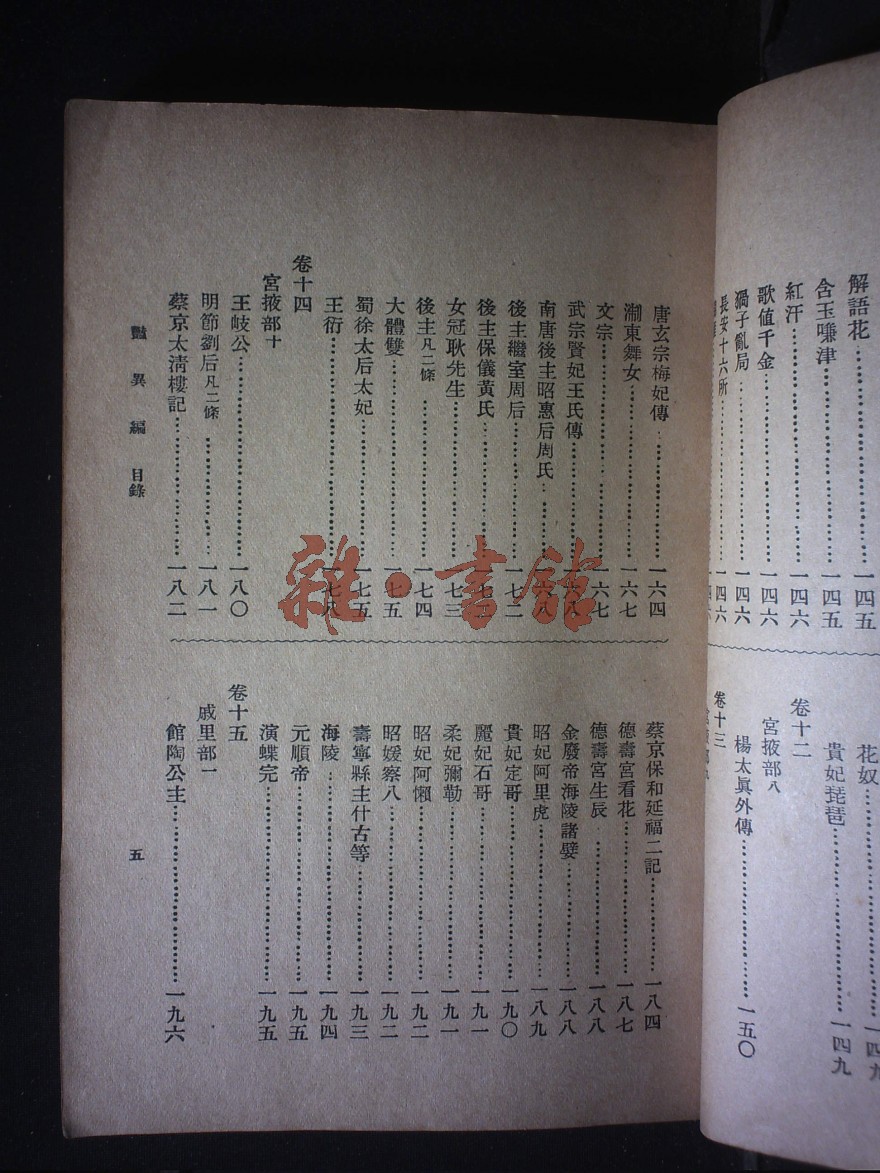 解語花……一四五
含玉嚥津……一四五
紅汗……一四六
歌值千金……一四六
猧子亂局……一四六
長安十六所……一四六
花奴……一四九
貴妃琵琶……一四九
卷十二
宮掖部八
楊太眞外傳……一五〇
卷十三
唐玄宗梅妃傳……一六四
淛東舞女……一六七
文宗……一六七
武宗賢妃王氏傳……一六八
南唐後主昭惠后周氏……一六八
後主繼室周后……一七二
後主保儀黃氏……一七三
女冠耿先生……一七三
後主凡二條……一七四
大體雙……一七五
蜀徐太后太妃……一七五
王衍……一七八
卷十四
宮掖部十
王岐公……一八〇
明節劉后凡二條……一八一
蔡京太淸樓記……一八二
蔡京保和延福二記……一八四
德壽宮看花……一八七
德壽宮生辰……一八八
金廢帝海陵諸嬖……一八八
昭妃阿里虎……一八九
貴妃定哥……一九〇
麗妃石哥……一九一
柔妃彌勒……一九一
昭妃阿懶……一九二
昭媛察八……一九二
壽寧縣主什古等……一九三
海陵……一九四
元順帝……一九五
演蝶完……一九五
卷十五
戚里部一
館陶公主……一九六
豔異編 目錄
五
雜·書館